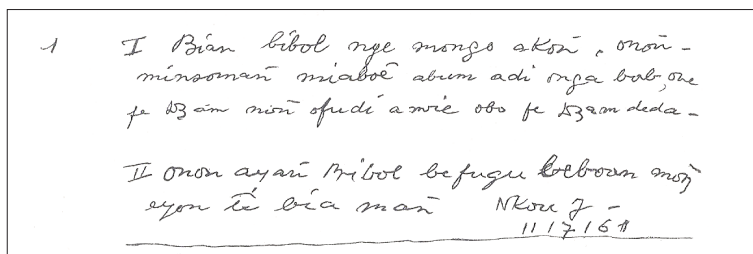 1 I Bian bibol nge mongo akoñ, onoñ-
minsomañ miaboé abum adi nga bob, one
fe dzam nioñ ofudi amvie obo fe dzam deda-
II onon ayañ Bibol befugu beboan moñ
eyon té bia mañ Nkou J-
11/7/61